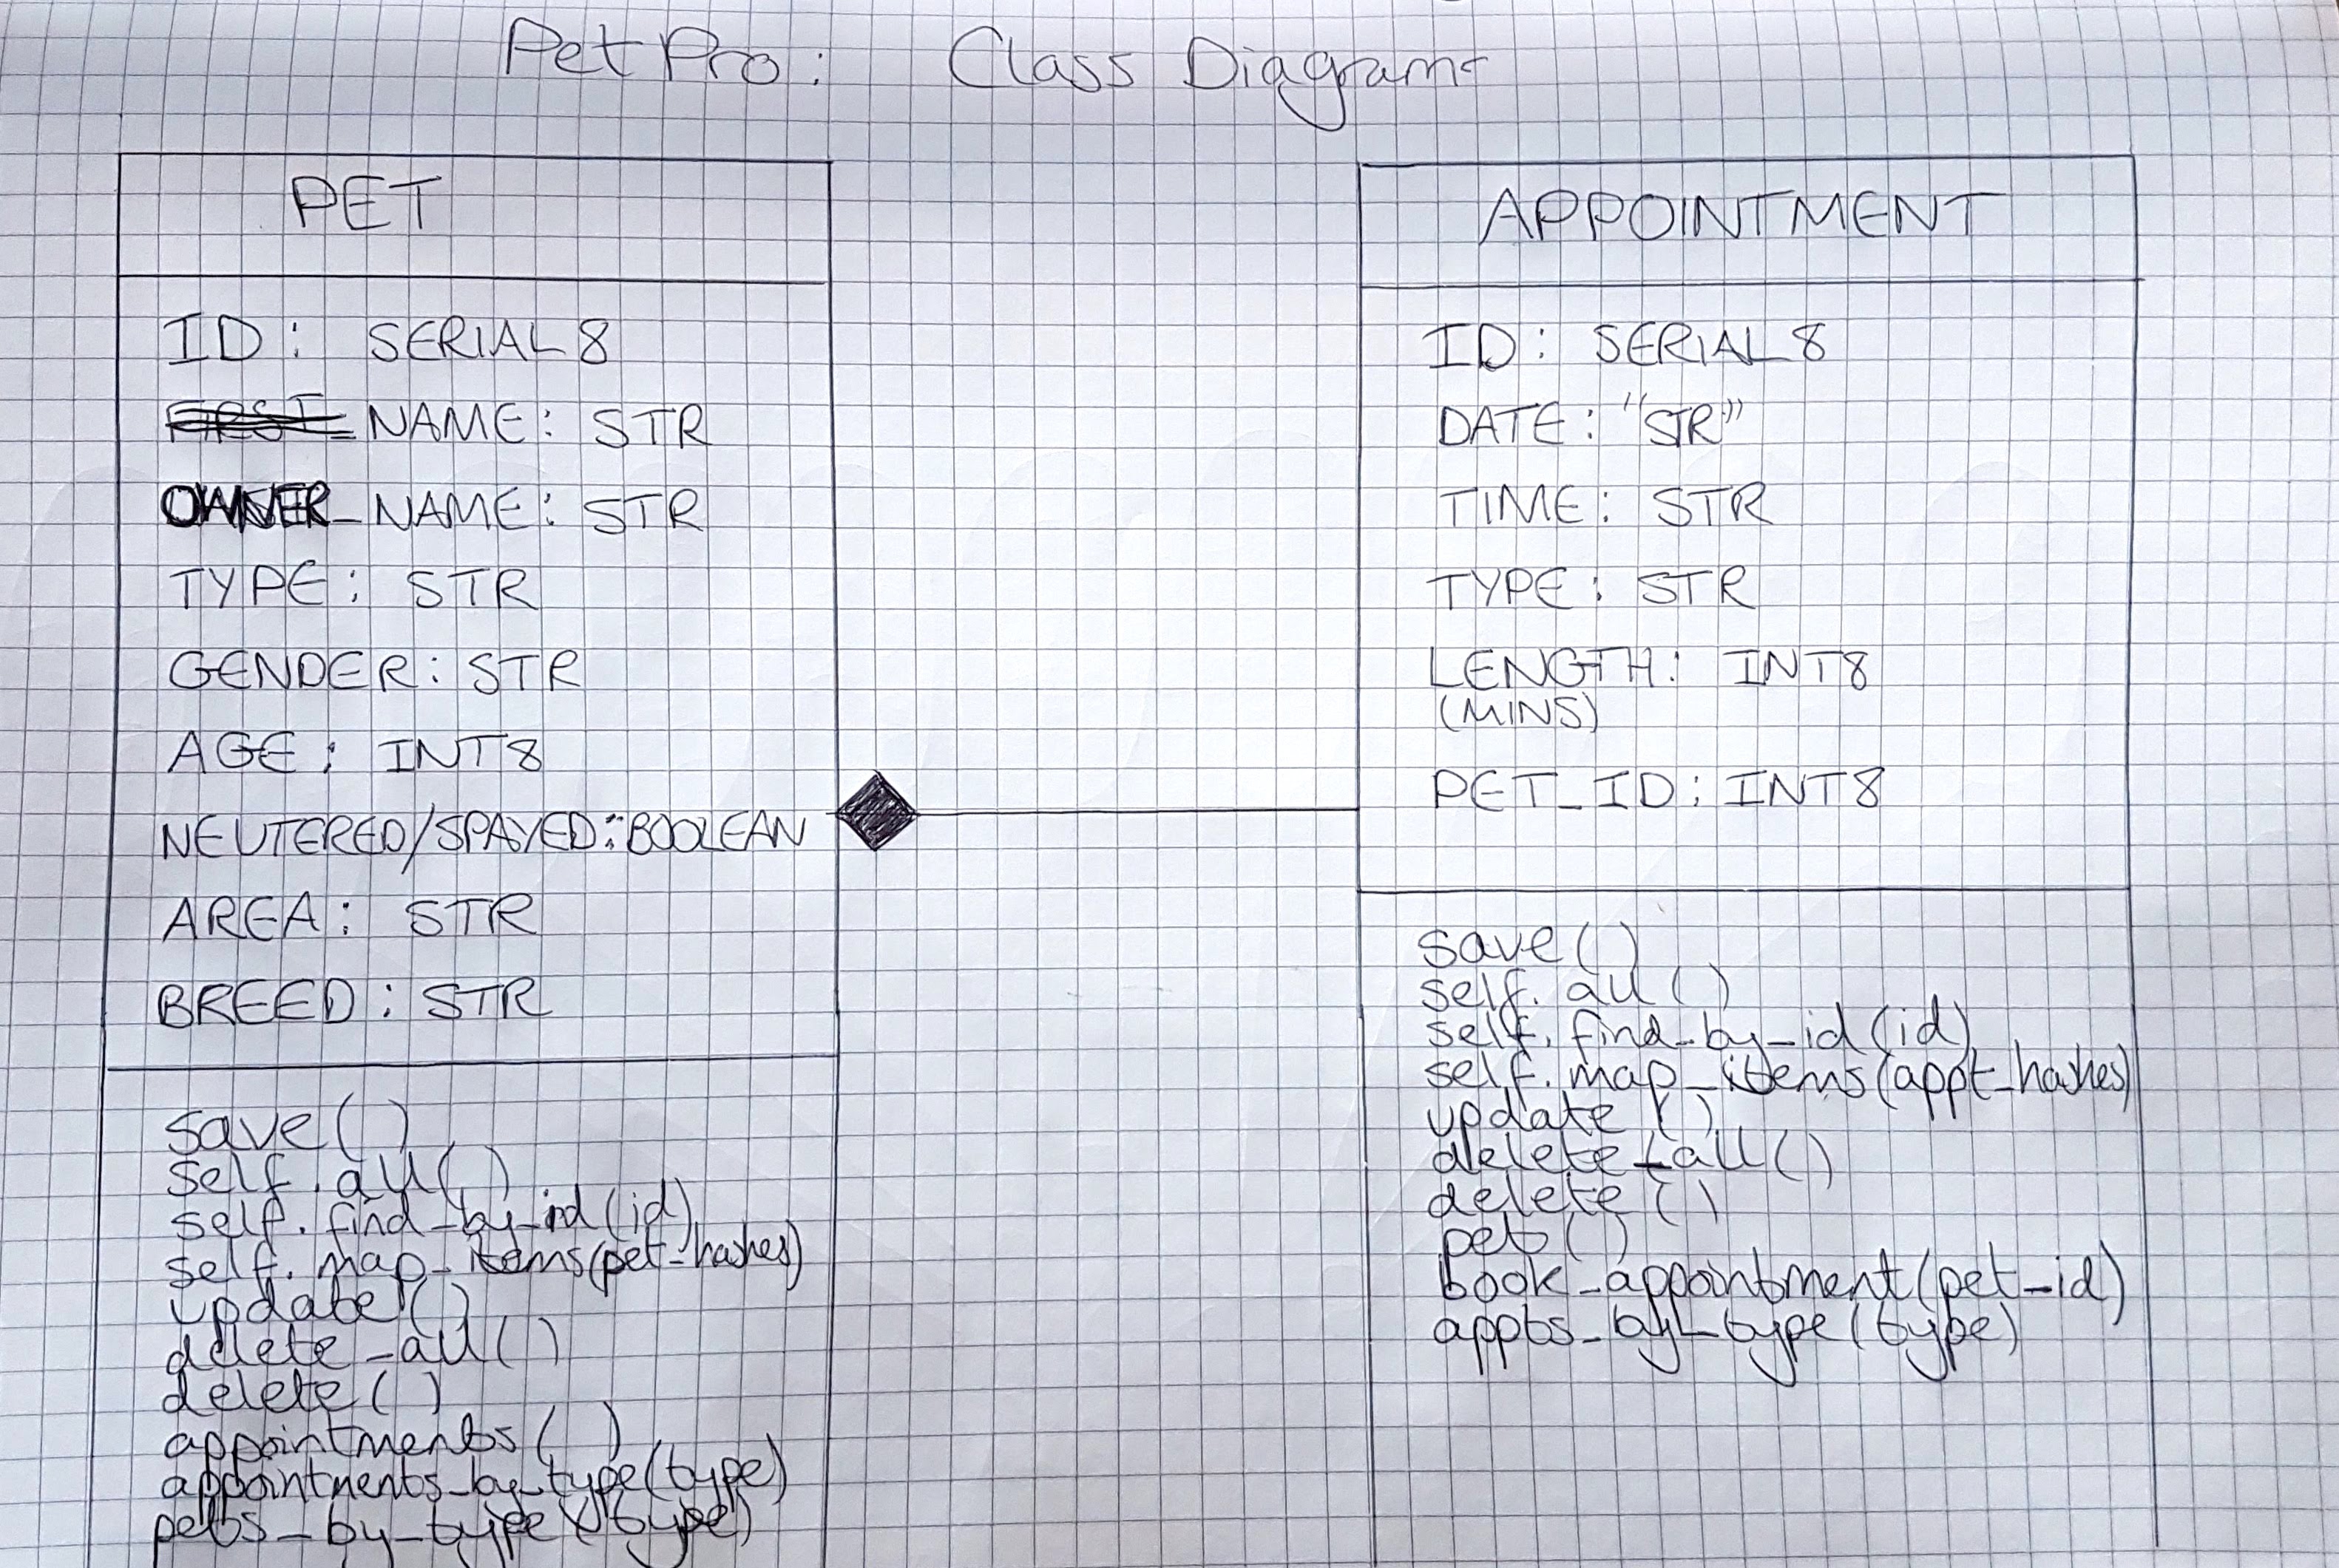 Pet Pro: Class Diagram
PET
ID: SERIAL 8
FIRST_NAME: STR
OWNER_NAME: STR
TYPE: STR
GENDER: STR
AGE: INT8
NEUTERED/SPAYED: BOOLEAN
AREA: STR
BREED: STR
save()
self.all()
self.find_by_id(id)
self.map_items(pet_hashes)
update()
delete_all()
delete()
appointments()
appointments_by_type(type)
pets_by_type(type)
APPOINTMENT
ID: SERIAL 8
DATE: "STR"
TIME: STR
TYPE: STR
LENGTH: INT8
(MINS)
PET_ID: INT8
save()
self.all()
self.find_by_id(id)
self.map_items(appt_hashes)
update()
delete_all()
delete()
pet()
book_appointment(pet_id)
appts_by_type(type)